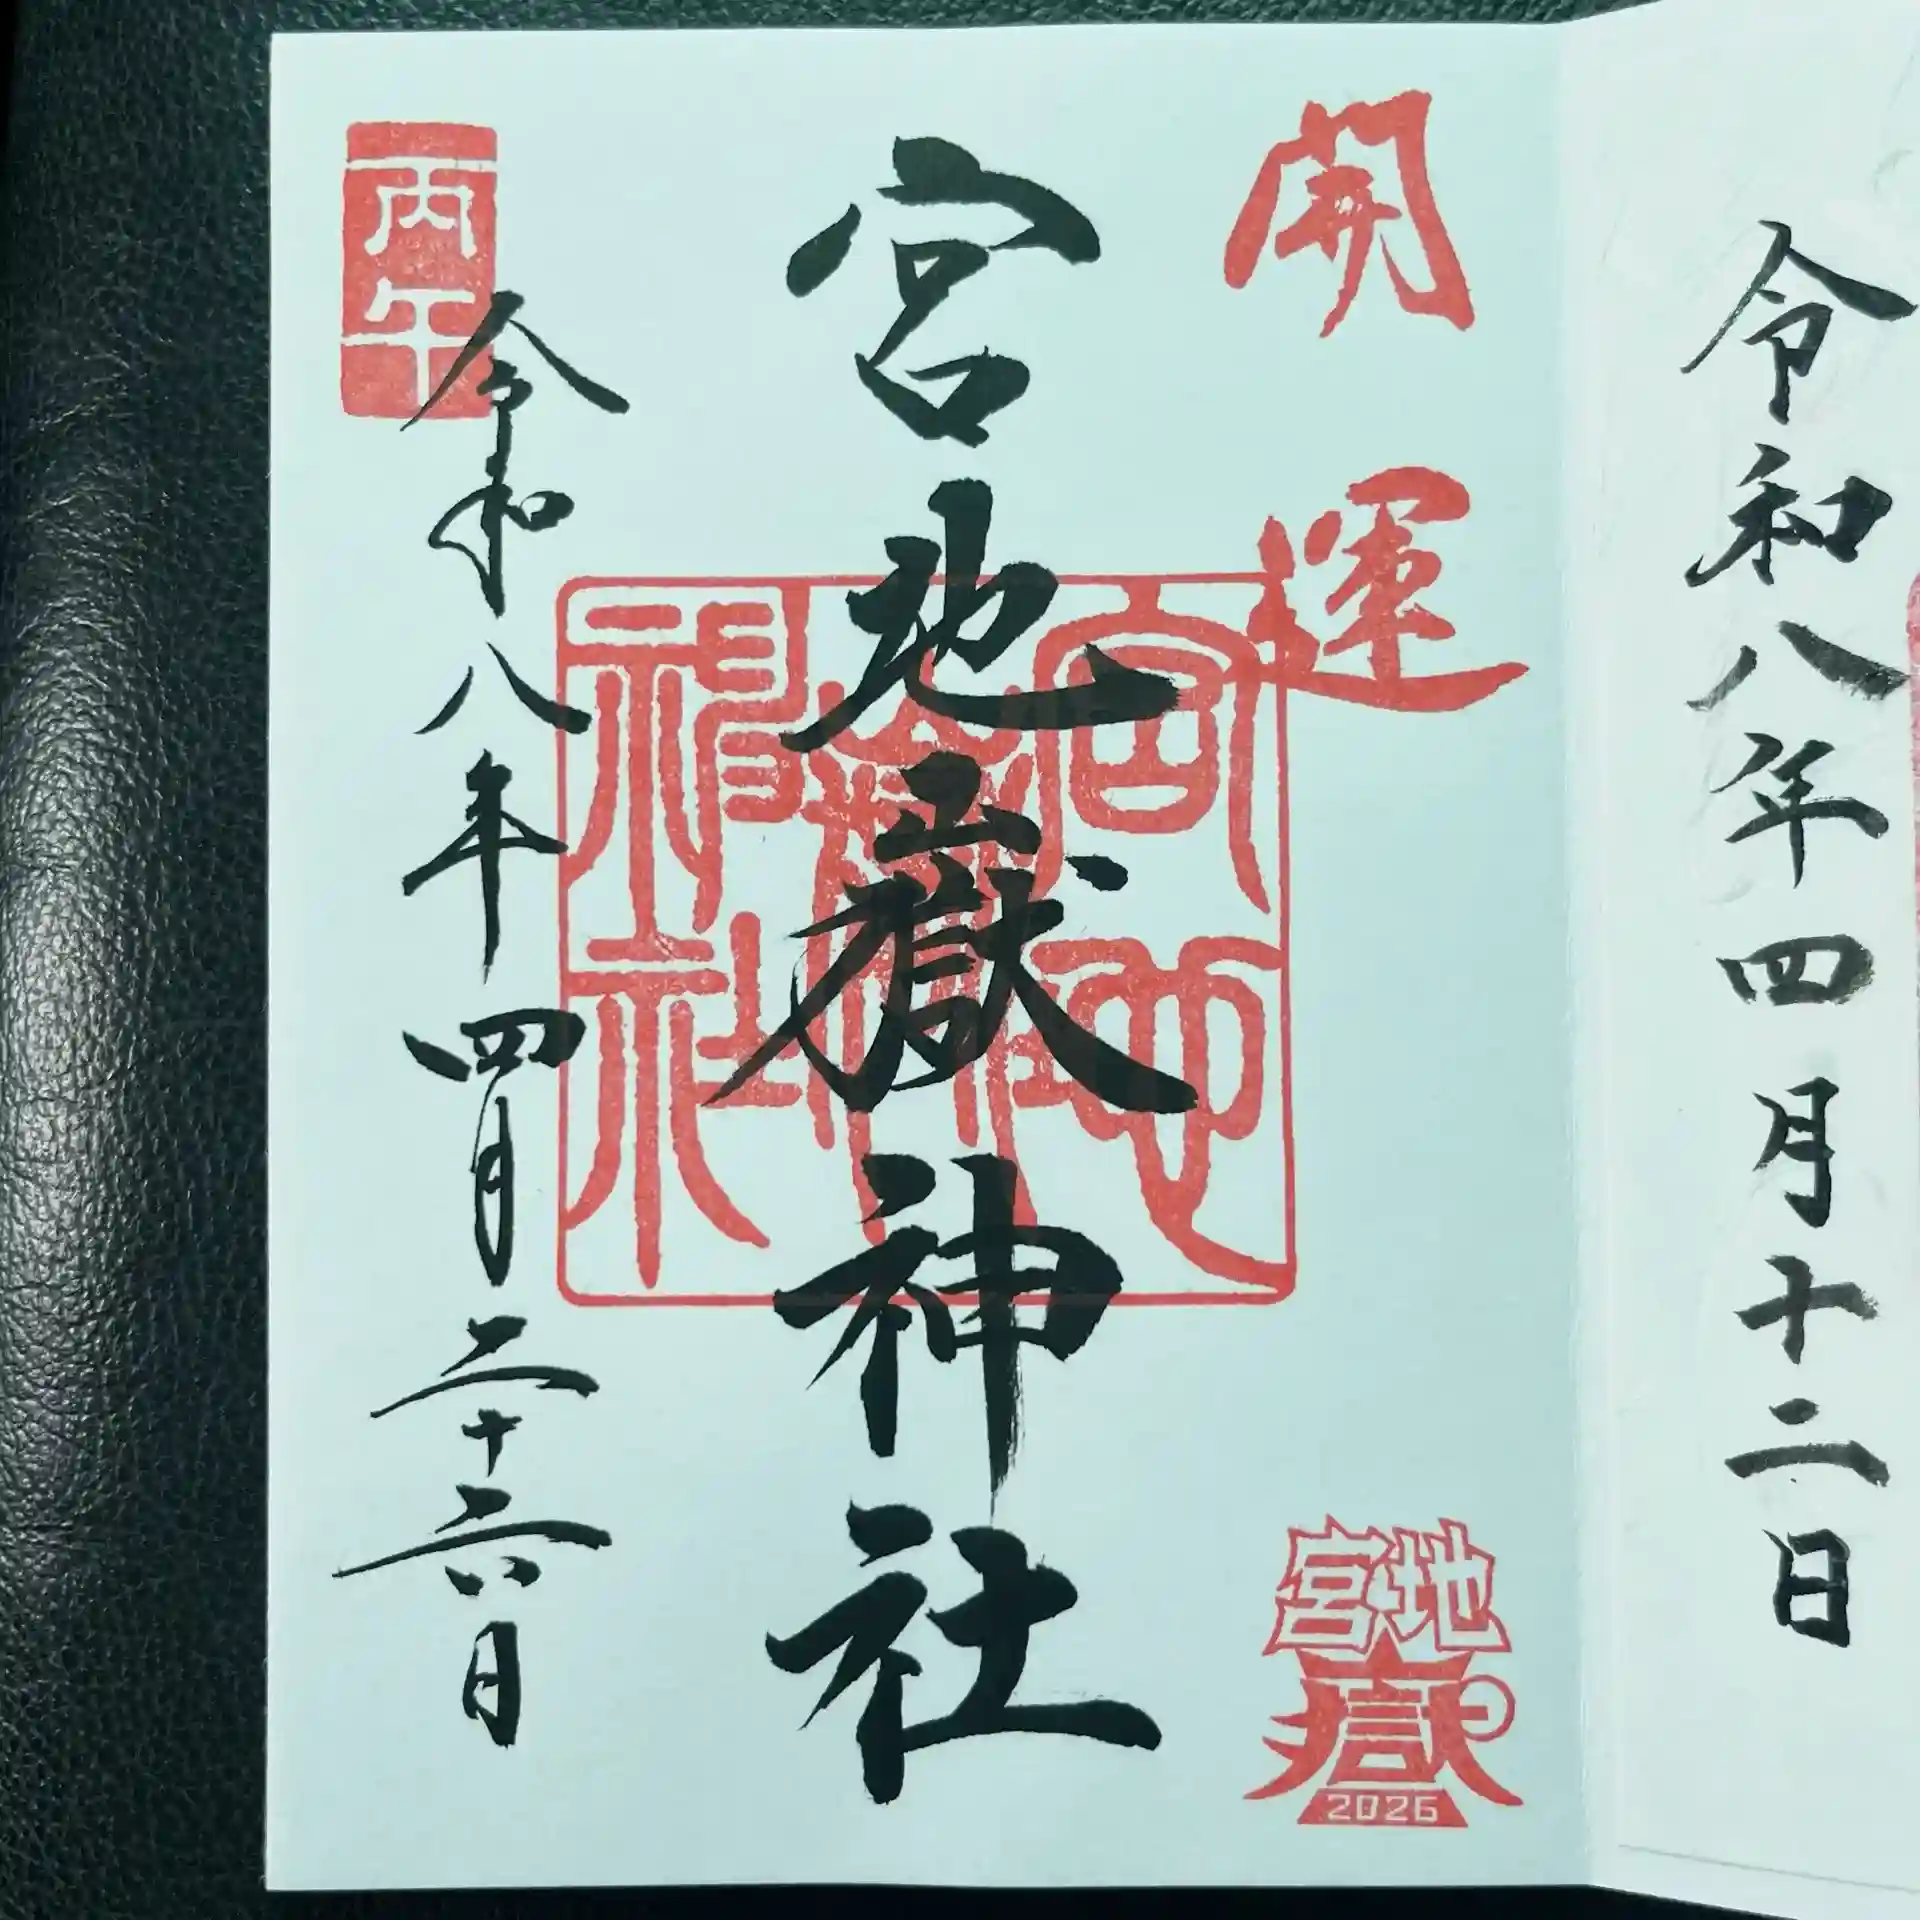 令和八年四月十二日
開運
宮地嶽
2026
宮地嶽神社
宮地嶽神社
丙午
令和八年四月二十六日